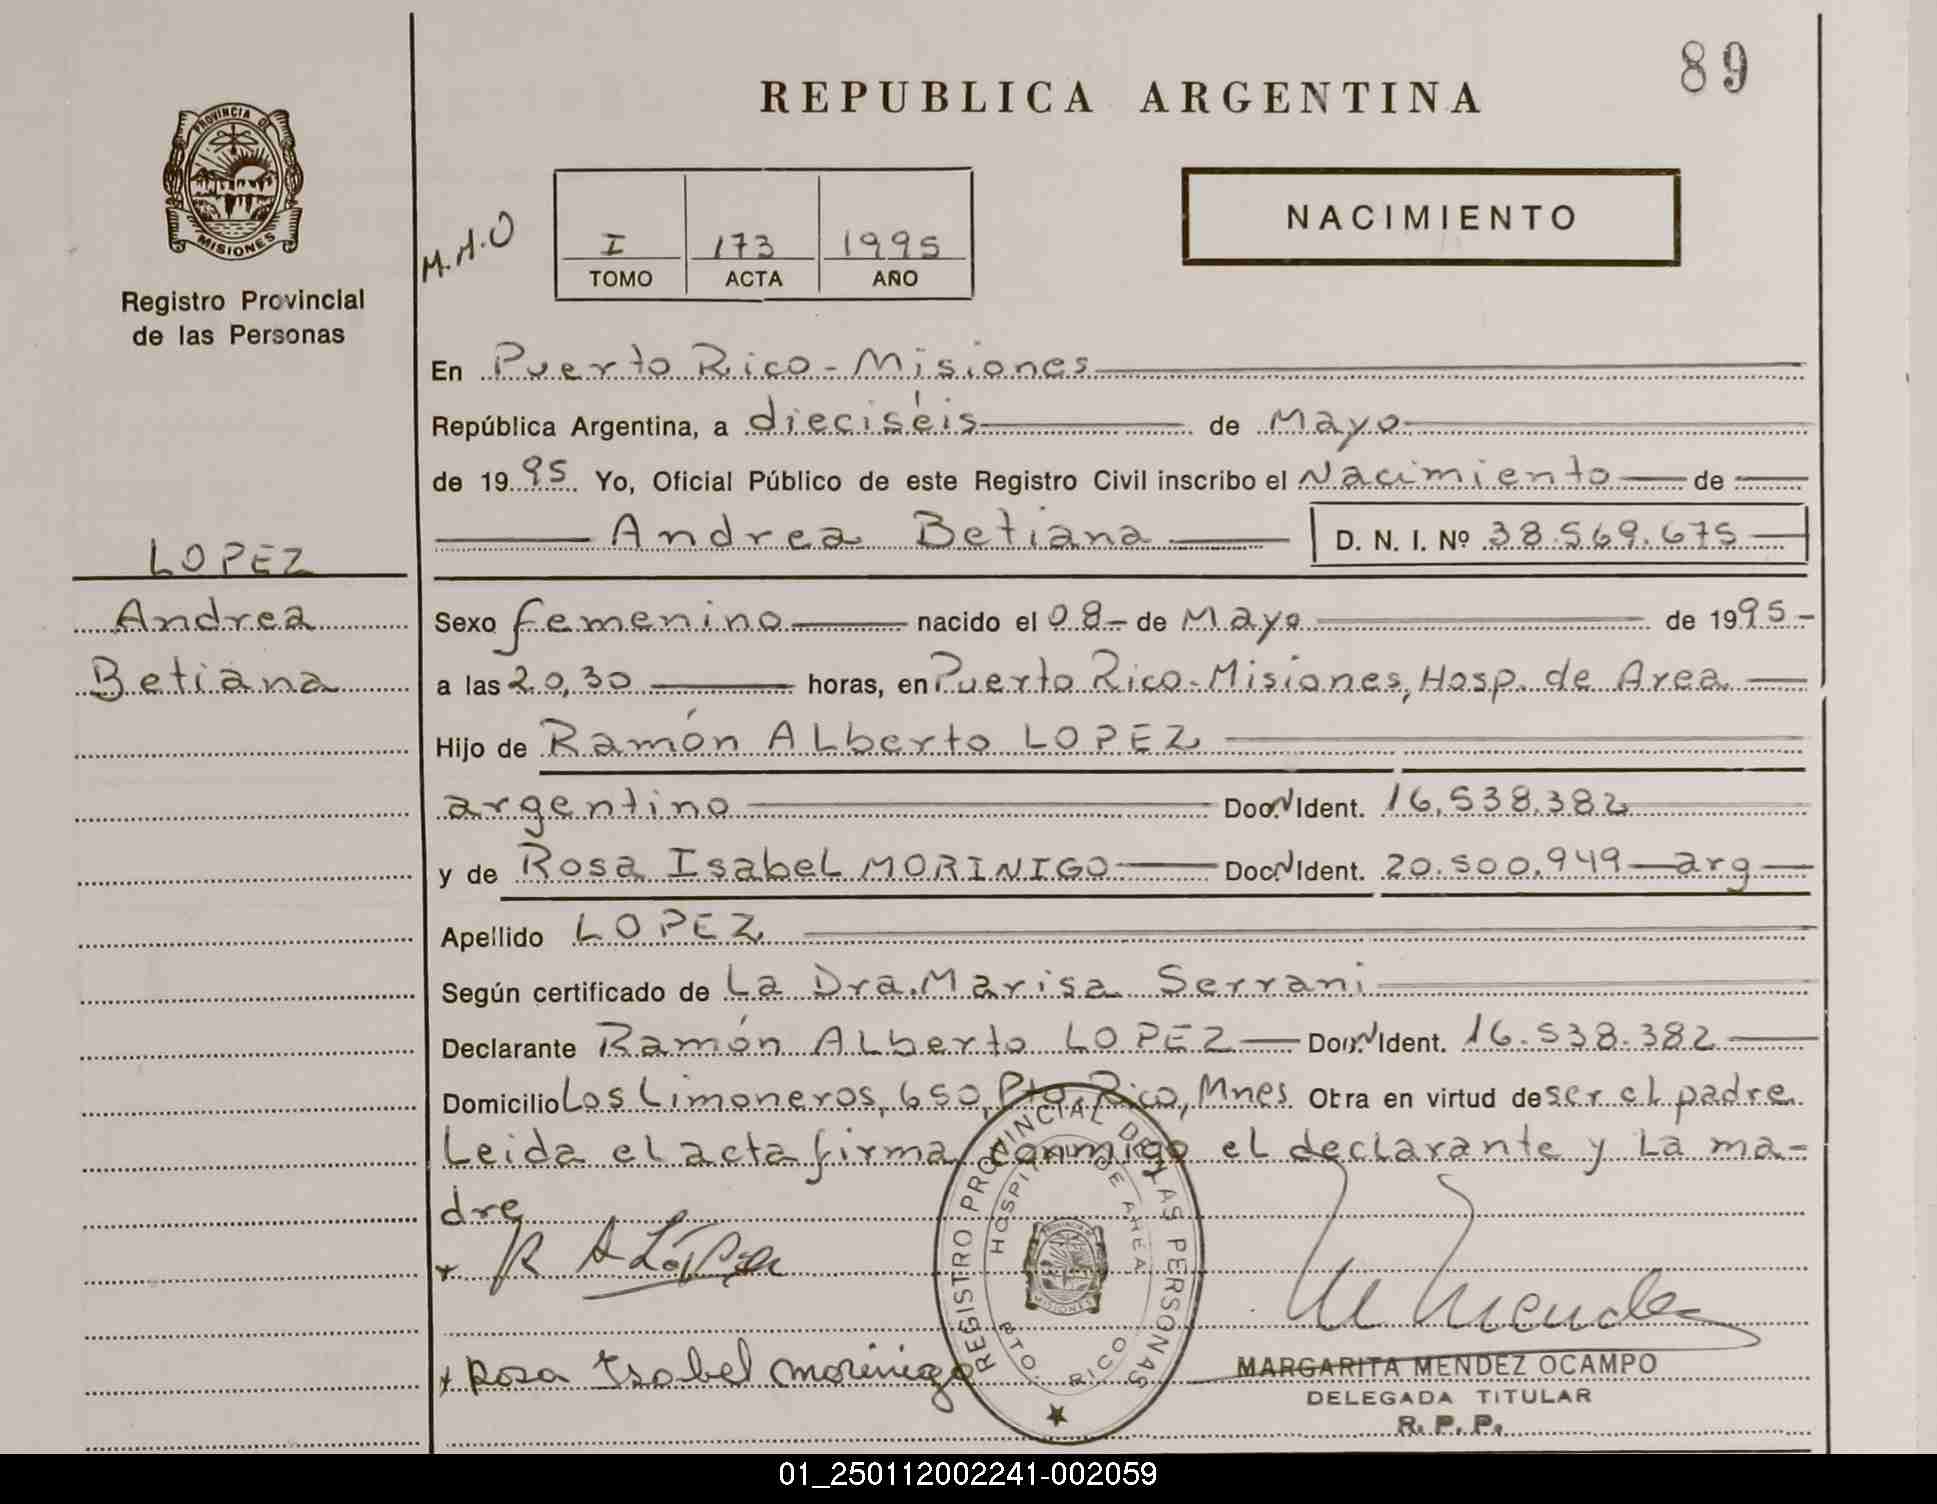 89
REPUBLICA ARGENTINA
PROVINCIA DE
MISIONES
Registro Provincial
de las Personas
M.M.O
I 173 1995
TOMO ACTA AÑO
NACIMIENTO
En Puerto Rico - Misiones
República Argentina, a dieciséis de Mayo
de 1995 Yo, Oficial Público de este Registro Civil inscribo el Nacimiento de
Andrea Betiana D. N. I. Nº 38.569.675
LOPEZ
Andrea
Betiana
Sexo femenino nacido el 08 - de Mayo de 1995 -
a las 20,30 horas, en Puerto Rico - Misiones, Hosp. de Area
Hijo de Ramón Alberto LOPEZ
argentino Doc. N Ident. 16.538.382
y de Rosa Isabel MORINIGO Doc. N Ident. 20.500.949 - arg
Apellido LOPEZ
Según certificado de La Dra. Marisa Serrani
Declarante Ramón Alberto LOPEZ Doc. N Ident. 16.538.382
Domicilio Los Limoneros, 650, Pto Rico, Mnes Obra en virtud de ser el padre
Leida el acta firma conmigo el declarante y La ma-
dre
R A López
Rosa Isabel Morinigo
REGISTRO PROVINCIAL DE LAS PERSONAS
HOSPITAL DE AREA
PTO. RICO
MISIONES
M Mendez
MARGARITA MENDEZ OCAMPO
DELEGADA TITULAR
R. P. P.
01_250112002241-002059